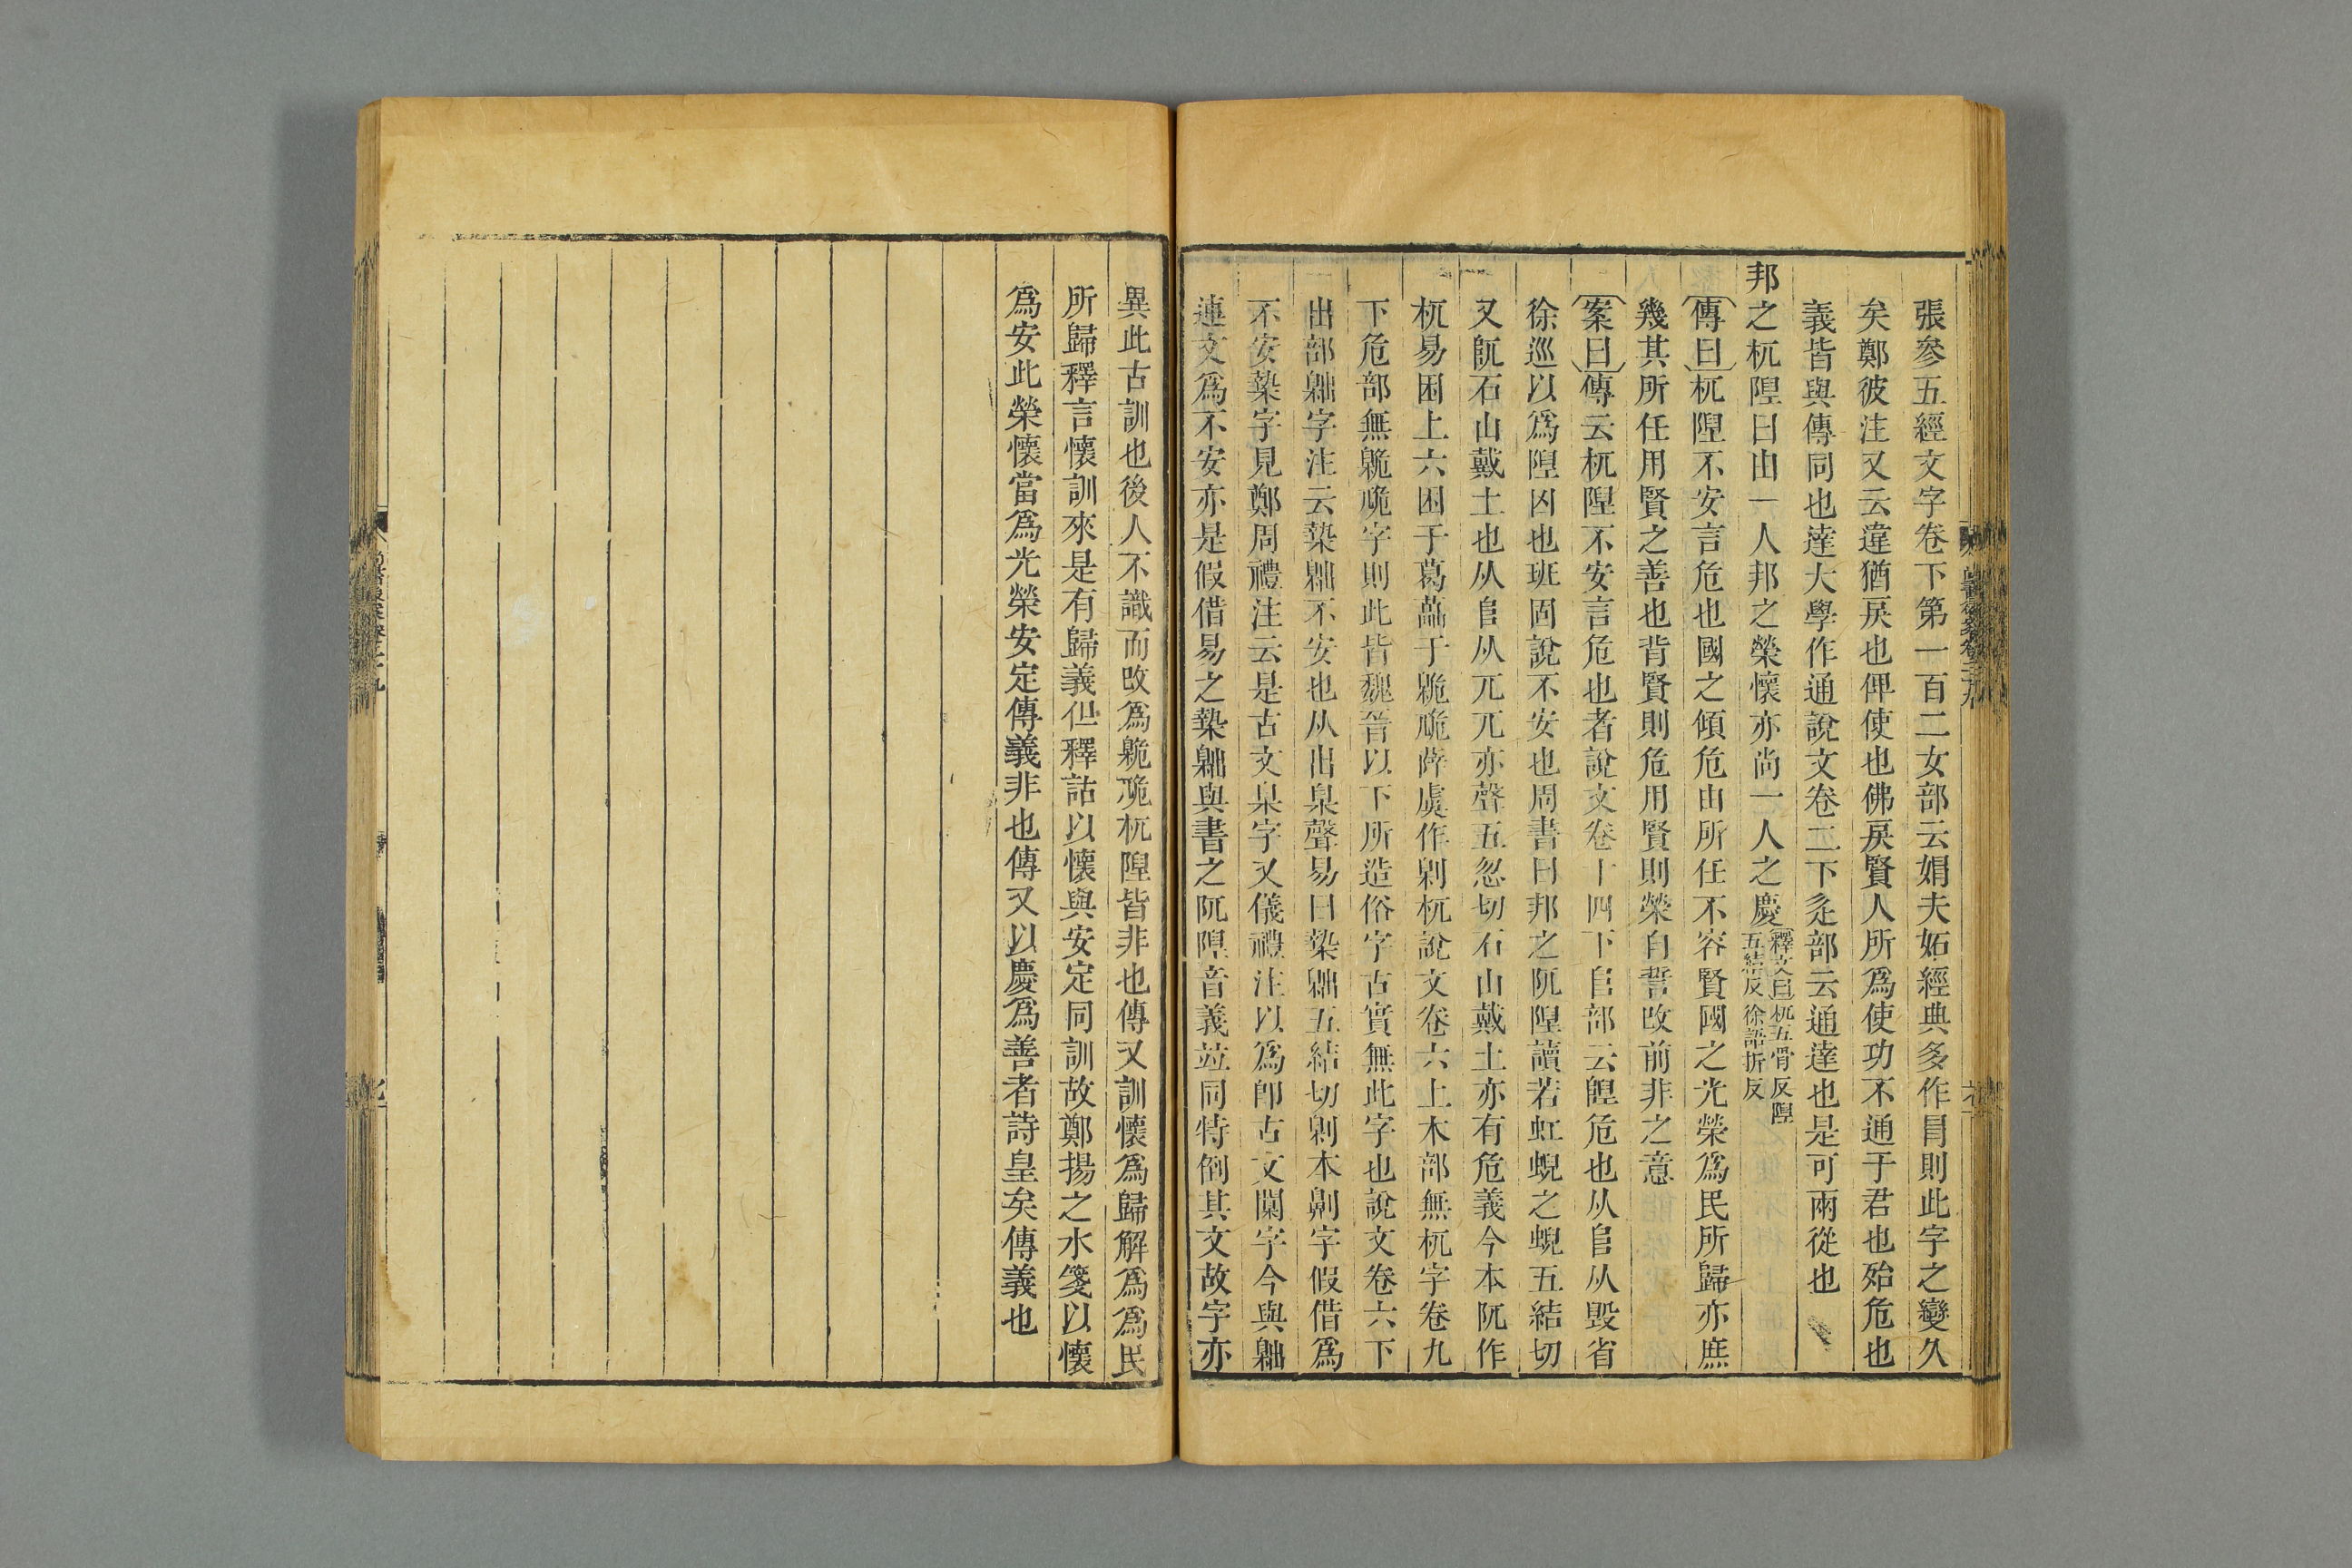 張參五經文字卷下第一百二女部云媢夫妬經典多作冒則此字之變久
矣鄭彼注又云違猶戾也俾使也佛戾賢人所爲使功不通于君也殆危也
義皆與傳同也達大學作通說文卷二下辵部云通達也是可兩從也
邦之杌隉曰由一人邦之榮懷亦尚一人之慶釋文曰杌五骨反隉五結反徐語折反
傳曰杌隉不安言危也國之傾危由所任不容賢國之光榮爲民所歸亦庶
幾其所任用賢之善也背賢則危用賢則榮自誓改前非之意
案曰傳云杌隉不安言危也者說文卷十四下𨸏部云隉危也从𨸏从毀省
徐巡以爲隉凶也班固說不安也周書曰邦之阢隉讀若虹蜺之蜺五結切
又阢石山戴土也从𨸏从兀兀亦聲五忽切石山戴土亦有危義今本阢作
杌易困上六困于葛藟于臲卼薛虞作劓杌說文卷六上木部無杌字卷九
下危部無臲卼字則此皆魏晉以下所造俗字古實無此字也說文卷六下
出部𣎴字注云槷𣎴不安也从出臬聲易曰槷𣎴五結切劓本劓字假借爲
不安槷字見鄭周禮注云是古文臬字又儀禮注以爲卽古文闑字今與
連文爲不安亦是假借易之槷與書之阢隉音義竝同特倒其文故字亦
異此古訓也後人不識而改爲臲卼杌隉皆非也傳又訓懷爲歸解爲爲民
所歸釋言懷訓來是有歸義但釋詁以懷與安定同訓故鄭揚之水箋以懷
爲安此榮懷當爲光榮安定傳義非也傳又以慶爲善者詩皇矣傳義也